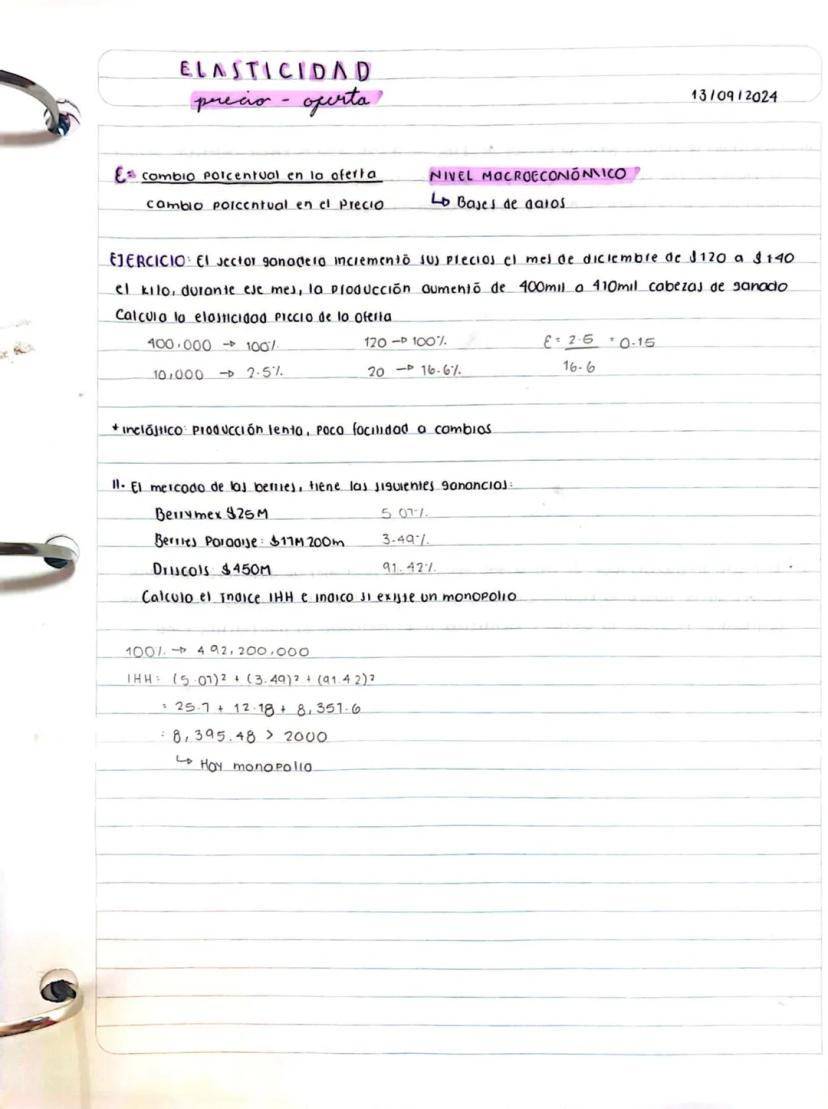 ELASTICIDAD
precio - oferta
13/09/2024
E= cambio porcentual en la oferta
cambio porcentual en el precio
NIVEL MACROECONÓMICO
↳ Bases de datos
EJERCICIO: El sector ganadero incrementó sus precios el mes de diciembre de $120 a $140
el kilo, durante ese mes, la producción aumentó de 400mil a 410mil cabezas de ganado
Calcula la elasticidad precio de la oferta
400,000 → 100% 120 → 100% E = 2.5 = 0.15
10,000 → 2.5% 20 → 16.6% 16.6
* inelástico: producción lenta, poca facilidad a cambios
II. El mercado de las berries, tiene las siguientes ganancias:
Berrymex $25M 5.07%
Berries Paradise: $17M 200m 3.49%
Driscols $450M 91.42%
Calcula el índice IHH e indica si existe un monopolio
100% → 492,200,000
IHH: (5.07)² + (3.49)² + (91.42)²
= 25.7 + 12.18 + 8,357.6
= 8,395.48 > 2000
↳ Hay monopolio